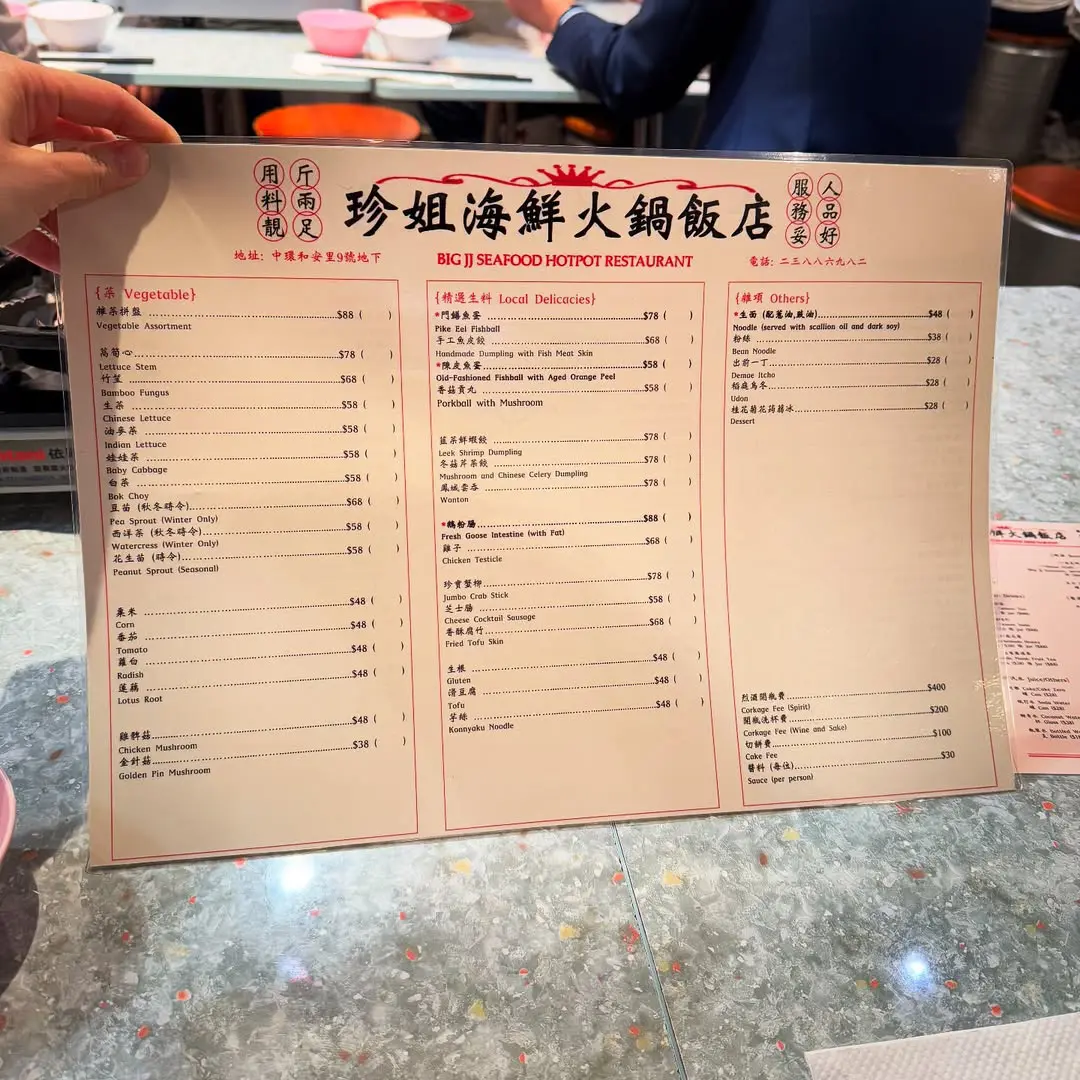 用料靚
斤兩足
珍姐海鮮火鍋飯店
服務妥
人品好
地址: 中環和安里9號地下
BIG JJ SEAFOOD HOTPOT RESTAURANT
電話: 二三八八六九八二
{菜 Vegetable}
雜菜拼盤 $88 ( )
Vegetable Assortment
萵筍心 $78 ( )
Lettuce Stem
竹笙 $68 ( )
Bamboo Fungus
生菜 $58 ( )
Chinese Lettuce
油麥菜 $58 ( )
Indian Lettuce
娃娃菜 $58 ( )
Baby Cabbage
白菜 $58 ( )
Bok Choy
豆苗 (秋冬時令) $68 ( )
Pea Sprout (Winter Only)
西洋菜 (秋冬時令) $58 ( )
Watercress (Winter Only)
花生苗 (時令) $58 ( )
Peanut Sprout (Seasonal)
粟米 $48 ( )
Corn
番茄 $48 ( )
Tomato
蘿白 $48 ( )
Radish
蓮藕 $48 ( )
Lotus Root
雞髀菇 $48 ( )
Chicken Mushroom
金針菇 $38 ( )
Golden Pin Mushroom
{精選生料 Local Delicacies}
*門鱔魚蛋 $78 ( )
Pike Eel Fishball
手工魚皮餃 $68 ( )
Handmade Dumpling with Fish Meat Skin
*陳皮魚蛋 $58 ( )
Old-Fashioned Fishball with Aged Orange Peel
香菇貢丸 $58 ( )
Porkball with Mushroom
韮菜鮮蝦餃 $78 ( )
Leek Shrimp Dumpling
冬菇芹菜餃 $78 ( )
Mushroom and Chinese Celery Dumpling
鳳城雲吞 $78 ( )
Wonton
*鵝粉腸 $88 ( )
Fresh Goose Intestine (with Fat)
雞子 $68 ( )
Chicken Testicle
珍寶蟹柳 $78 ( )
Jumbo Crab Stick
芝士腸 $58 ( )
Cheese Cocktail Sausage
香酥腐竹 $68 ( )
Fried Tofu Skin
生根 $48 ( )
Gluten
滑豆腐 $48 ( )
Tofu
芋絲 $48 ( )
Konnyaku Noodle
{雜項 Others}
*生面 (配蔥油,豉油) $48 ( )
Noodle (served with scallion oil and dark soy)
粉絲 $38 ( )
Bean Noodle
出前一丁 $28 ( )
Demae Itcho
稻庭烏冬 $28 ( )
Udon
桂花菊花蒟蒻冰 $28 ( )
Dessert
烈酒開瓶費 $400
Corkage Fee (Spirit)
開瓶洗杯費 $200
Corkage Fee (Wine and Sake)
切餅費 $100
Cake Fee
醬料 (每位) $30
Sauce (per person)
火鍋飯店